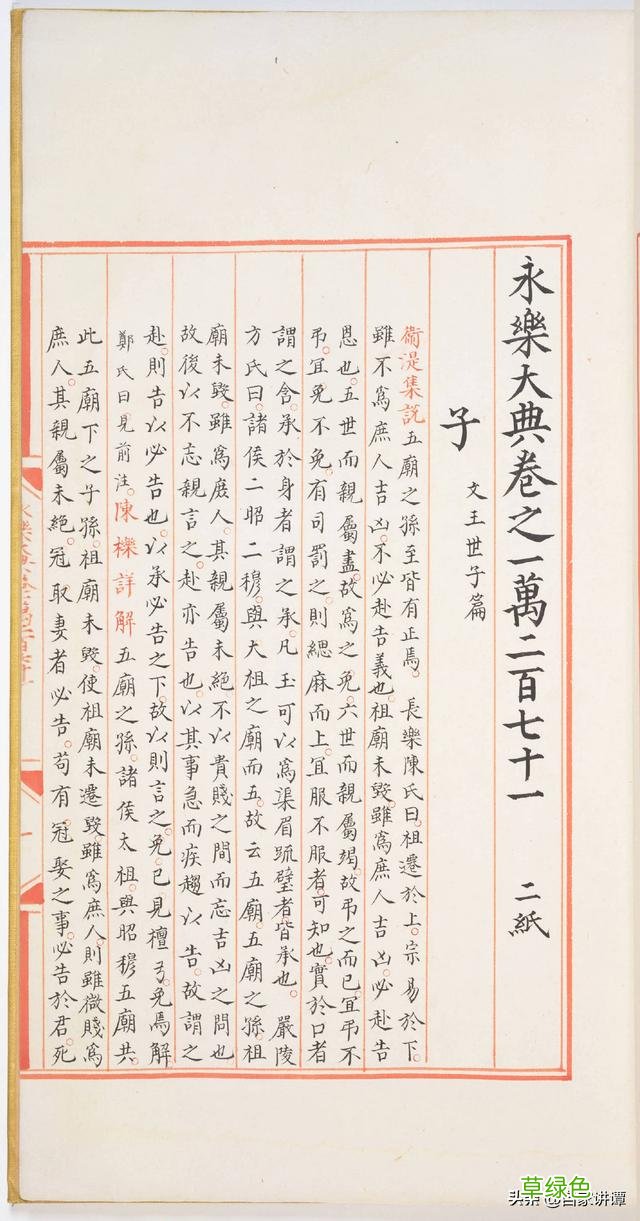 永樂大典卷之一萬二百七十一 二紙
子 文王世子篇
衛湜集說五廟之孫至皆有正焉。長樂陳氏曰。祖遷於上。宗易於下。
雖不為庶人吉凶。不必赴告義也。祖廟未毀。雖為庶人吉凶。必赴告
恩也。五世而親屬盡。故為之免。六世而親屬竭。故弔之而已。宜弔不
弔。宜免不免。有司罰之。則緦麻而上。宜服不服者。可知也。實於口者
謂之含。承於身者謂之承。凡玉可以為渠眉疏璧者。皆承也。嚴陵
方氏曰。諸侯二昭二穆。與大祖之廟而五。故云五廟。五廟之孫。祖
廟未毀。雖為庶人。其親屬未絕。不以貴賤之間而忘吉凶之問也
故後以不忘親言之。赴亦告也。以其事急而疾趨以告。故謂之
赴。則告以必告也。以承必告之下。故以則言之。免。已見檀弓。免焉解。
鄭氏曰見前注。陳櫟詳解五廟之孫。諸侯太祖。與昭穆五廟共。
此五廟下之子孫。祖廟未毀。使祖廟未遷毀。雖為庶人。則雖微賤為
庶人。其親屬未絕。冠取妻者必告。苟有冠娶之事。必告於君。死
草绿色
头条 @百家讲谭